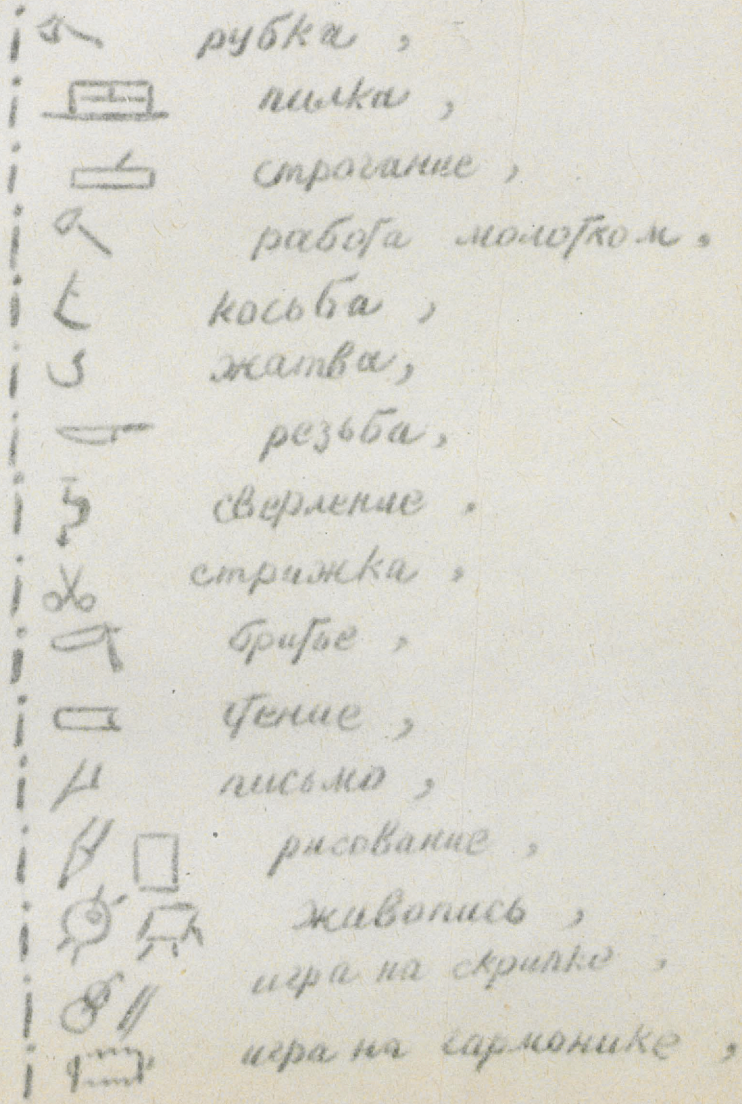 рубка,
пилка,
строгание,
работа молотком,
косьба,
жатва,
резьба,
сверление,
стрижка,
бритье,
чтение,
письмо,
рисование,
живопись,
игра на скрипке,
игра на гармонике,